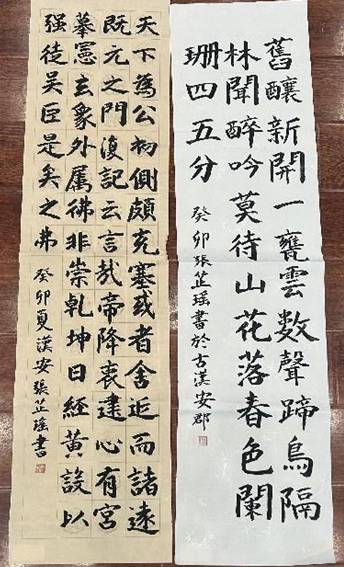 舊釀新開一甕雲數聲蹄鳥隔
林聞醉吟莫待山花落春色闌
珊四五分
癸卯張芷瑤書於古漢安郡
天下為公初側頗充塞或者舍近而諸遠
既元之門復記云言哉帝降衷逮心有宮
摹憲玄象外属彿非崇乾坤日經黄設以
强徒吴臣是矣之弗
癸卯夏漢安張芷瑤書